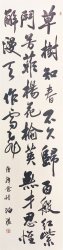 草樹知春不久歸百般紅紫
鬥芳菲楊花榆莢無才思惟
解漫天作雪飛